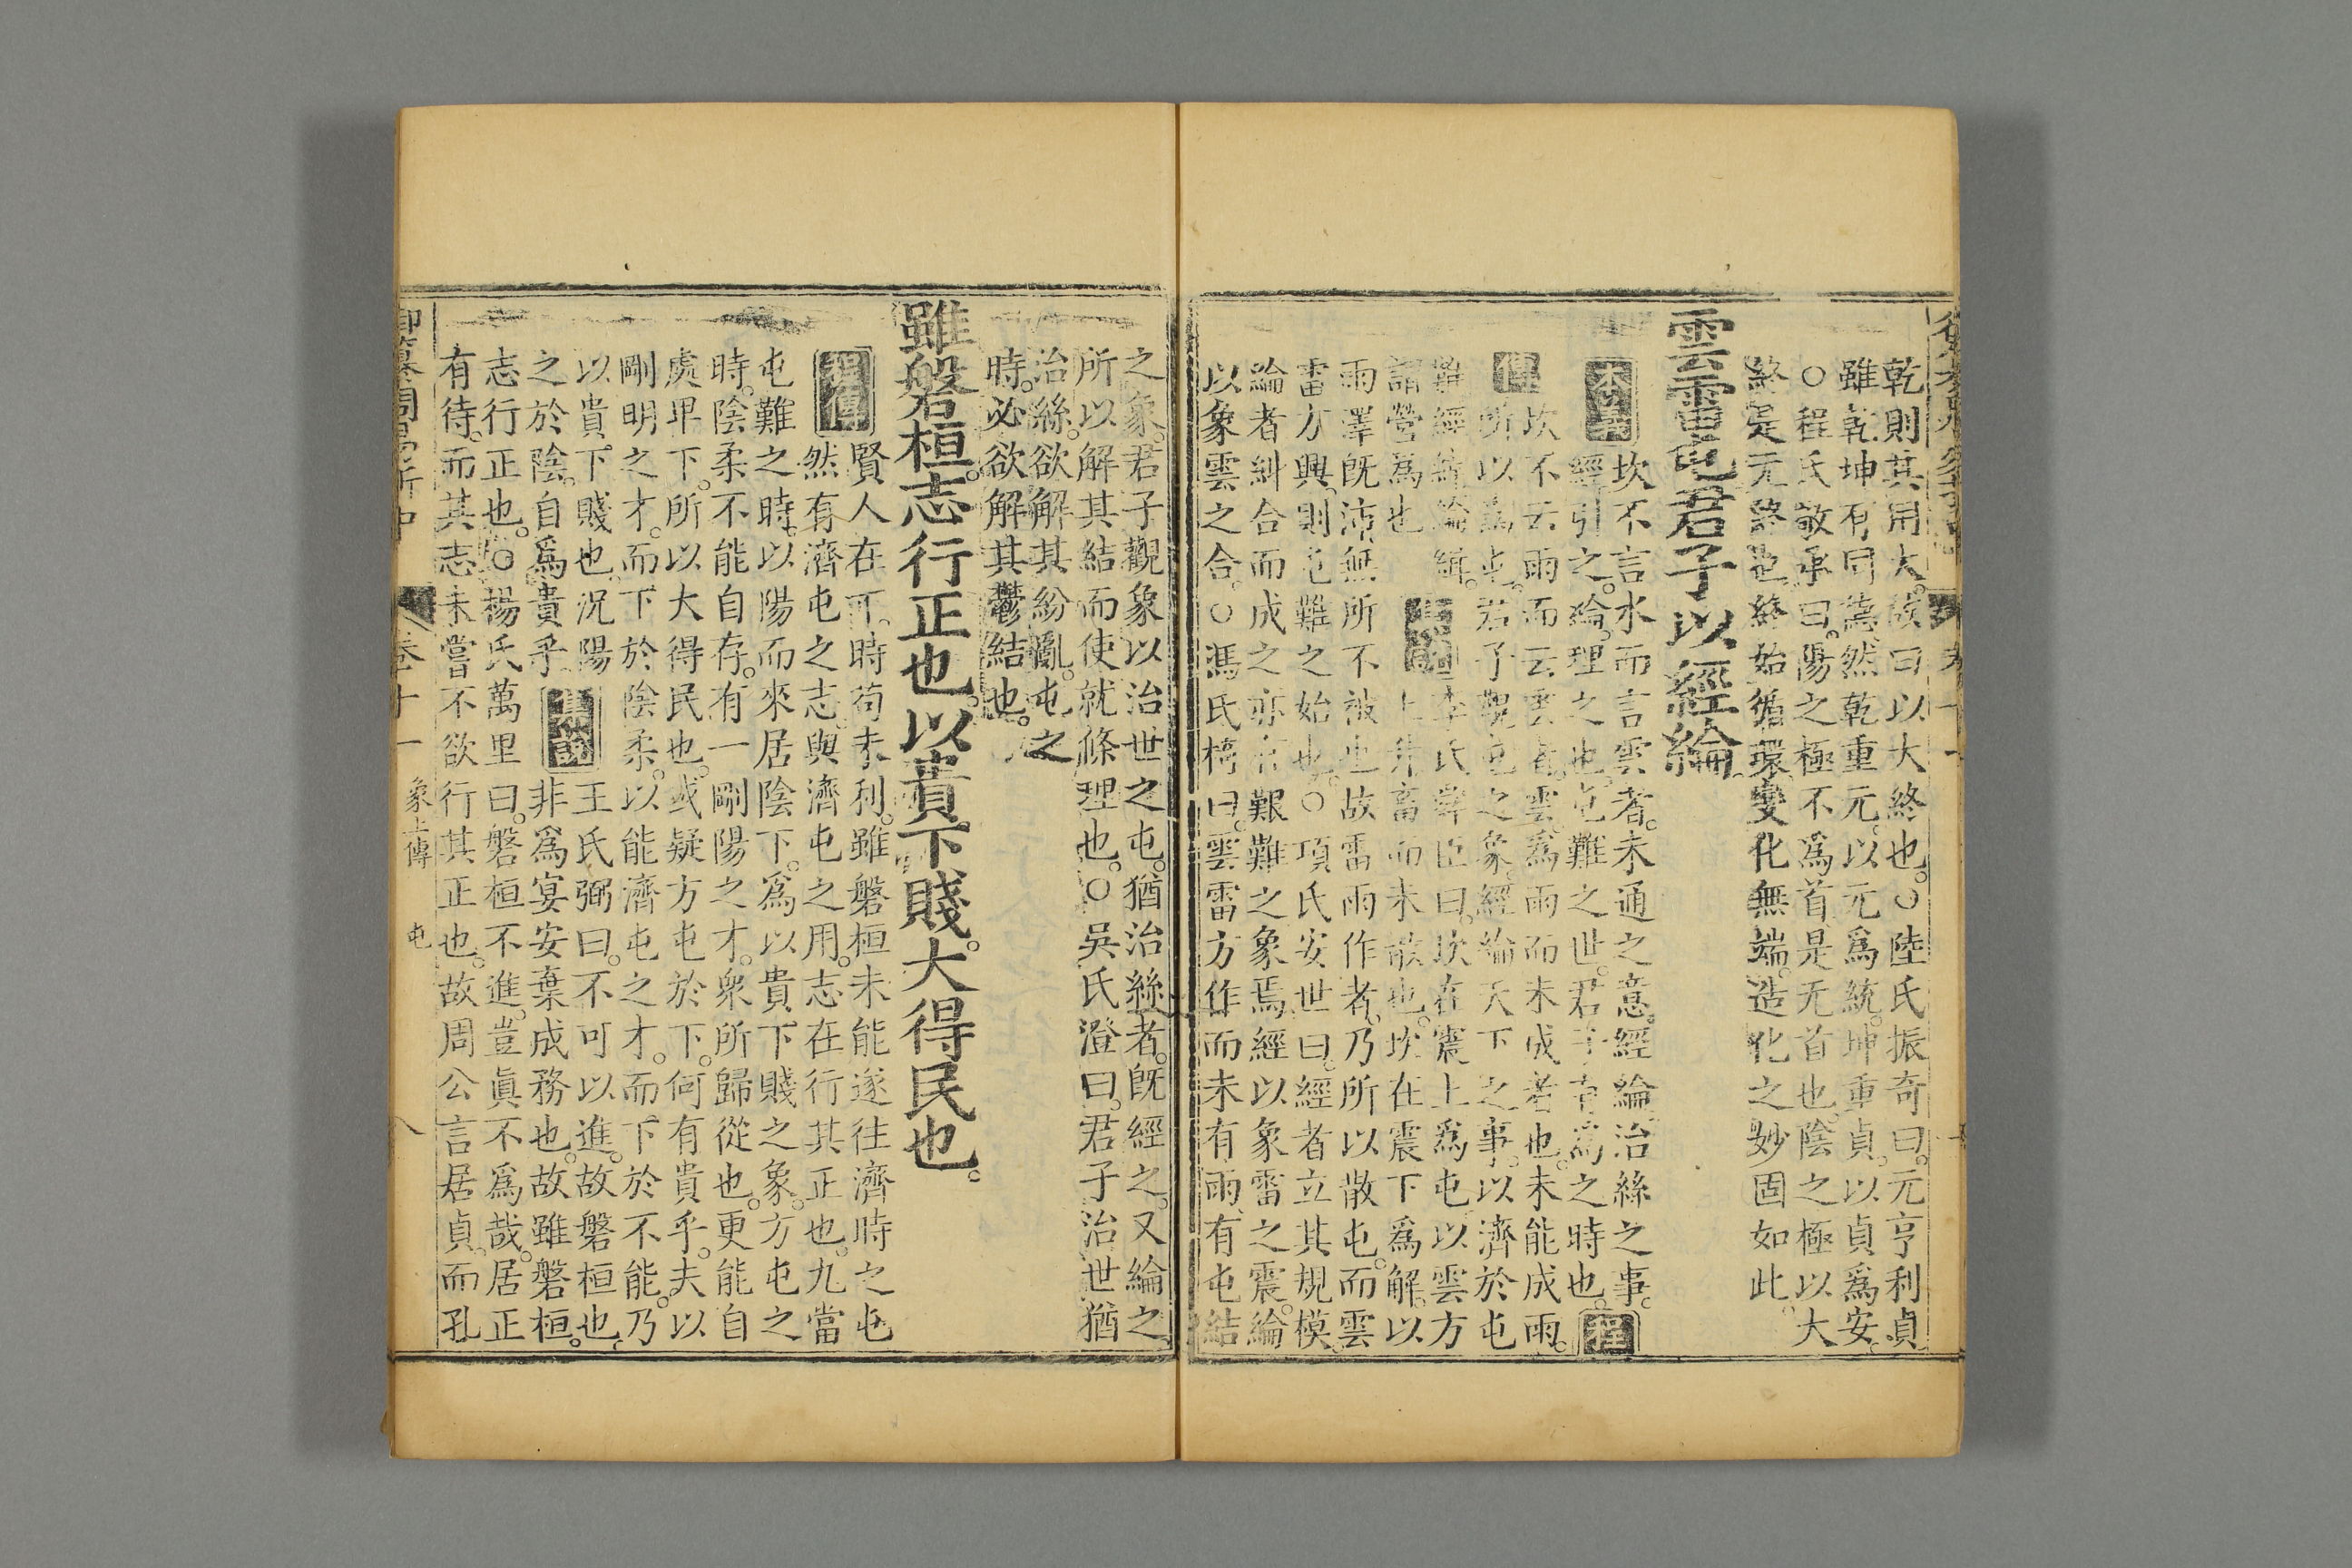 乾則其用大。後曰以大終也。○陸氏振奇曰。元亨利貞
雖乾坤有同德。然乾重元。以元爲統。坤重貞。以貞爲安。
○程氏敬承曰。陽之極不爲首。是无首也。陰之極以大
終。是无終也。終始循環。變化無端。造化之妙固如此。
雲雷屯。君子以經綸。
本義 坎不言水而言雲者。未通之意。經綸治絲之事。
經引之。綸理之也。屯難之世。君子有爲之時也。 程
傳 坎不云雨而云雲者。雲爲雨而未成者也。未能成雨。
所以爲屯。君子觀屯之象。經綸天下之事。以濟於屯
難。經緯綸緝。
謂營爲也 集說 李氏舜臣曰。坎在震上爲屯。以雲方
上升畜而未散也。坎在震下爲解。以
雨澤旣沛。無所不被也。故雷雨作者。乃所以散屯。而雲
雷方興。則屯難之始也。○項氏安世曰。經者立其規模。
綸者糾合而成之。亦有艱難之象焉。經以象雷之震。綸
以象雲之合。○馮氏椅曰。雲雷方作而未有雨。有屯結
之象。君子觀象以治世之屯。猶治絲者。旣經之。又綸之。
所以解其結而使就條理也。○吳氏澄曰。君子治世猶
治絲。欲解其紛亂。屯之
時。必欲解其鬱結也。
雖磐桓。志行正也。以貴下賤。大得民也。
程傳 賢人在下。時苟未利。雖磐桓未能遂往濟時之屯
然有濟屯之志。與濟屯之用。志在行其正也。九當
屯難之時。以陽而來居陰下。爲以貴下賤之象。方屯之
時。陰柔不能自存。有一剛陽之才。衆所歸從也。更能自
處卑下。所以大得民也。或疑方屯於下。何有貴乎。夫以
剛明之才。而下於陰柔。以能濟屯之才。而下於不能。乃
以貴下賤也。況陽
之於陰。自爲貴乎。 集說 王氏弼曰。不可以進。故磐桓也。
非爲宴安棄成務也。故雖磐桓。
志行正也。○楊氏萬里曰。磐桓不進。豈眞不爲哉。居正
有待。而其志未嘗不欲行其正也。故周公言居貞。而孔
御纂周易折中 卷十一 象上傳 屯 八